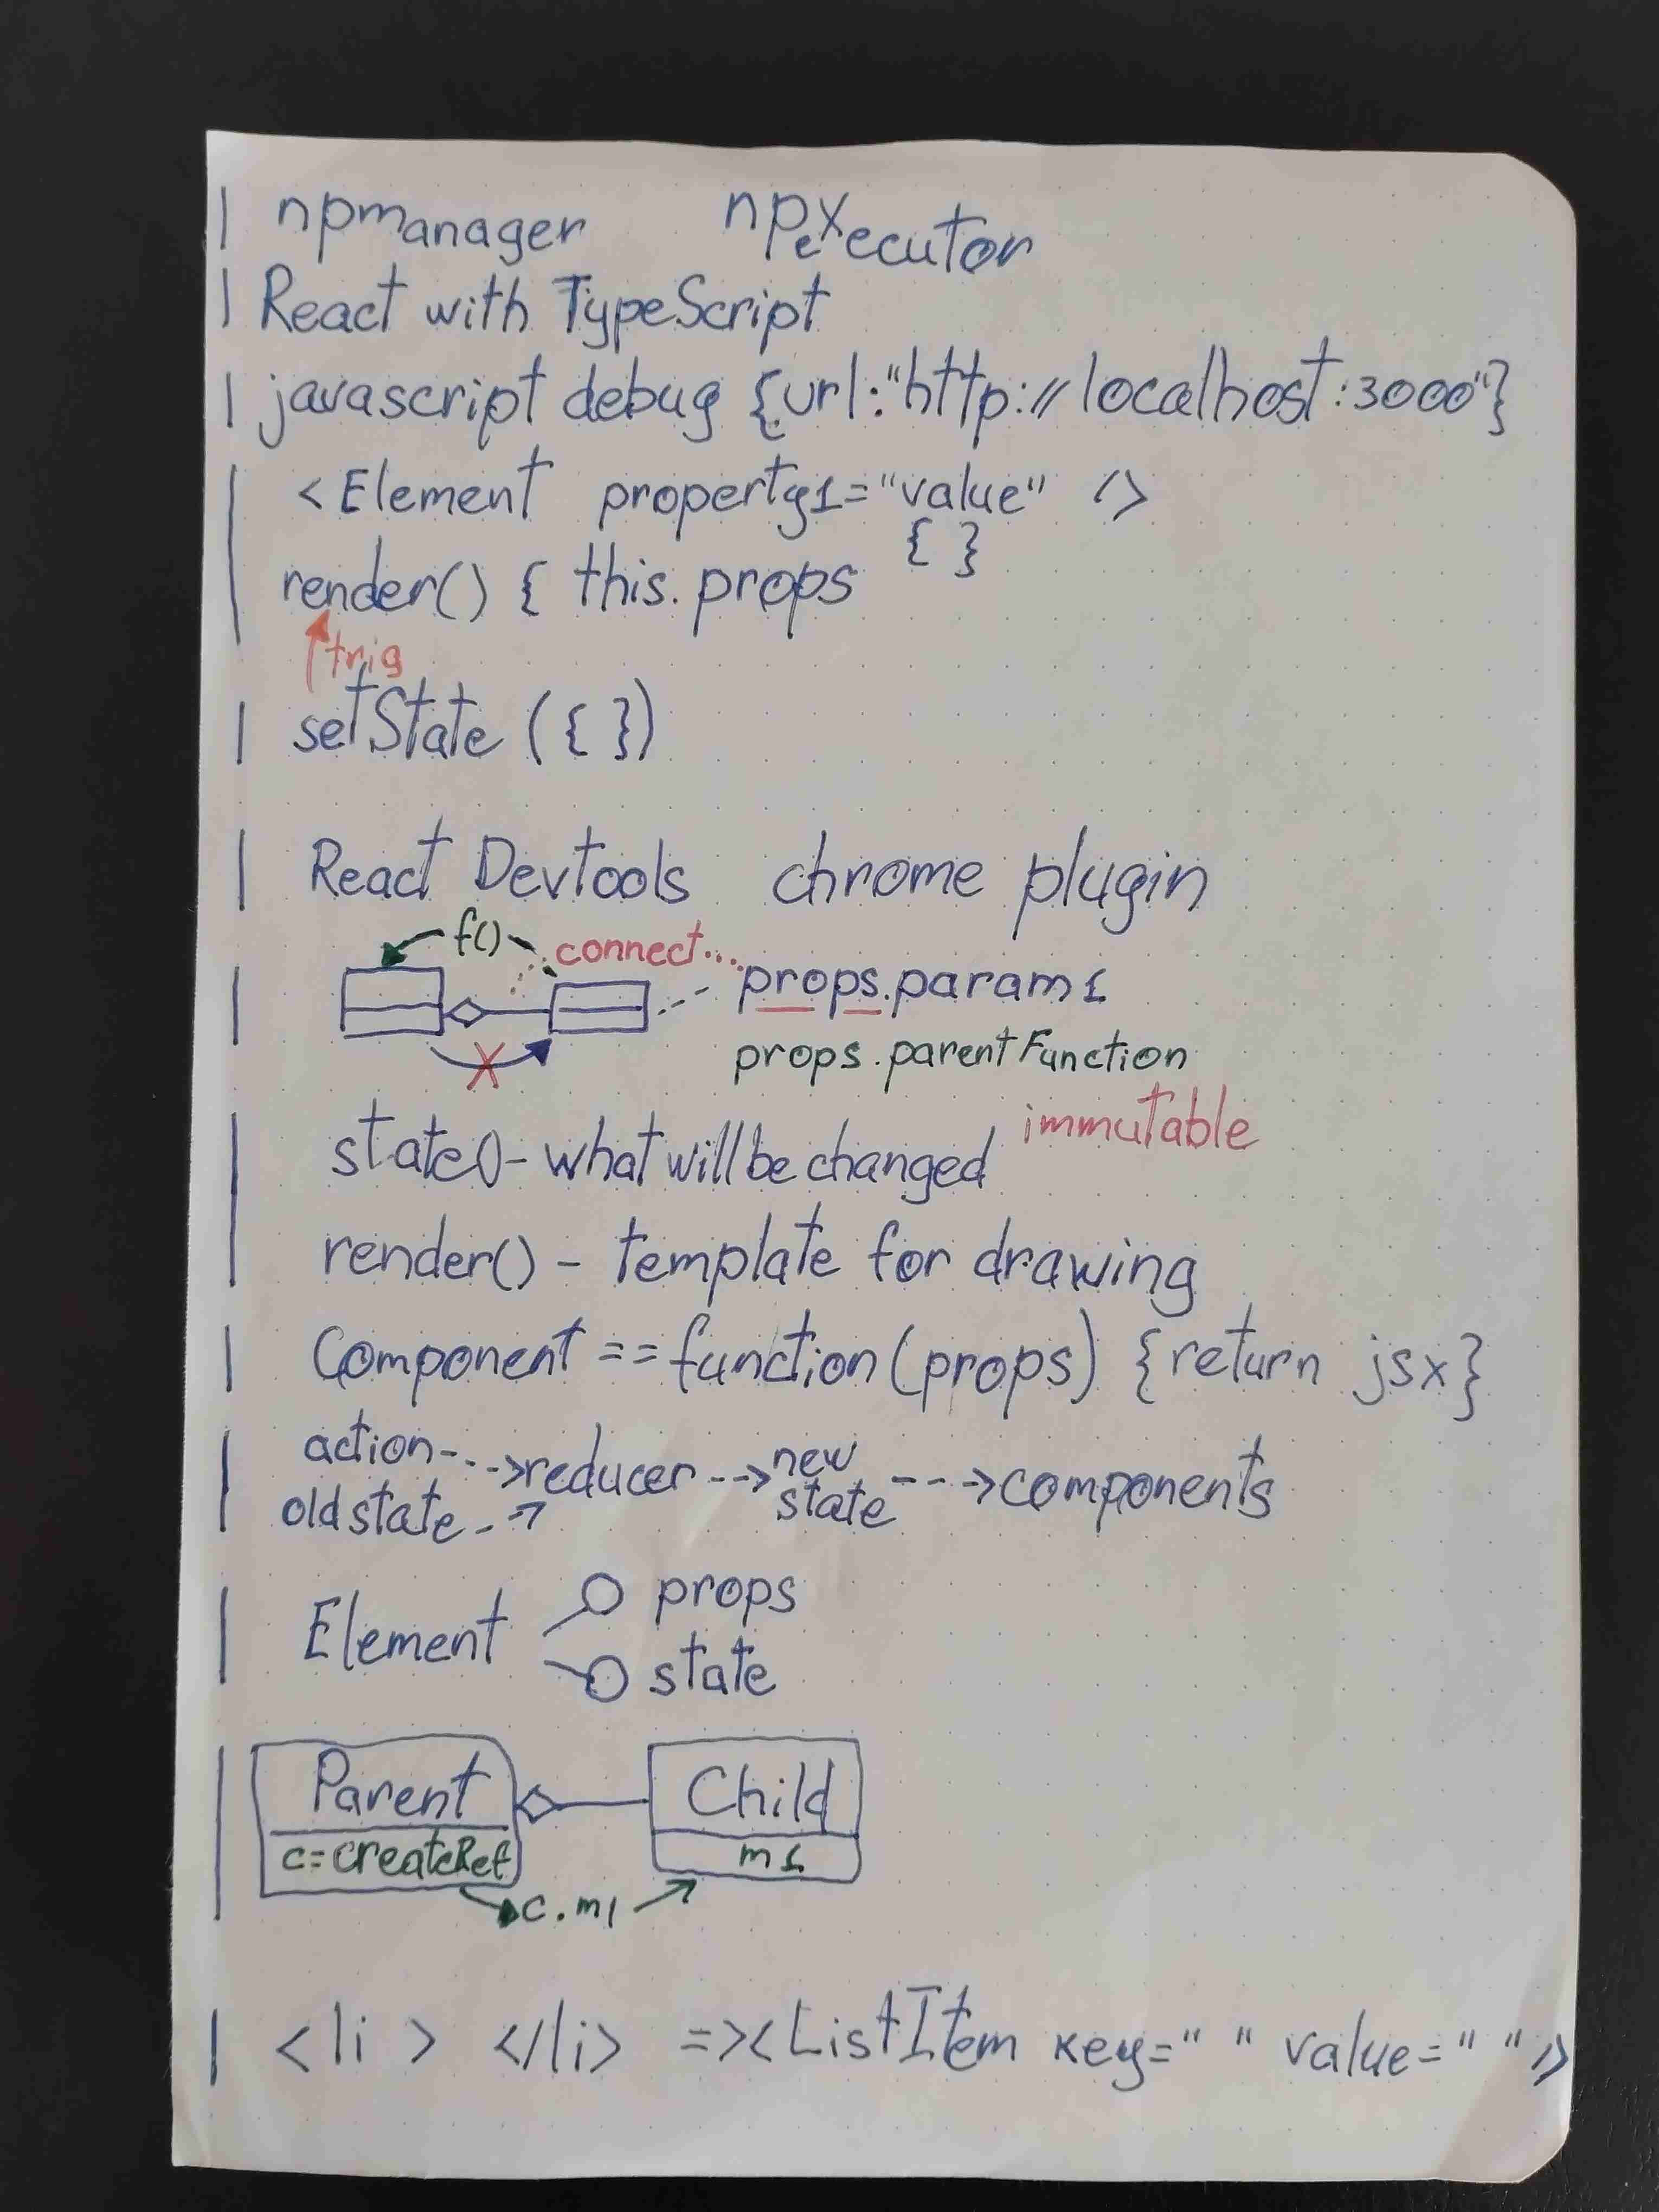 npmanager npeXecutor
React with TypeScript
javascript debug {url:"http://localhost:3000"}
<Element property1="value" />
{ }
render() { this.props
trig
setState ({ })
React Devtools chrome plugin
f() connect... props.param1
X props.parentFunction
immutable
state()- what will be changed
render() - template for drawing
Component == function(props) {return jsx}
action---> reducer --> new state ---> components
old state -->
Element props
state
Parent Child
c=createRef m1
c.m1
<li > </li> => <ListItem key=" " value=" " />